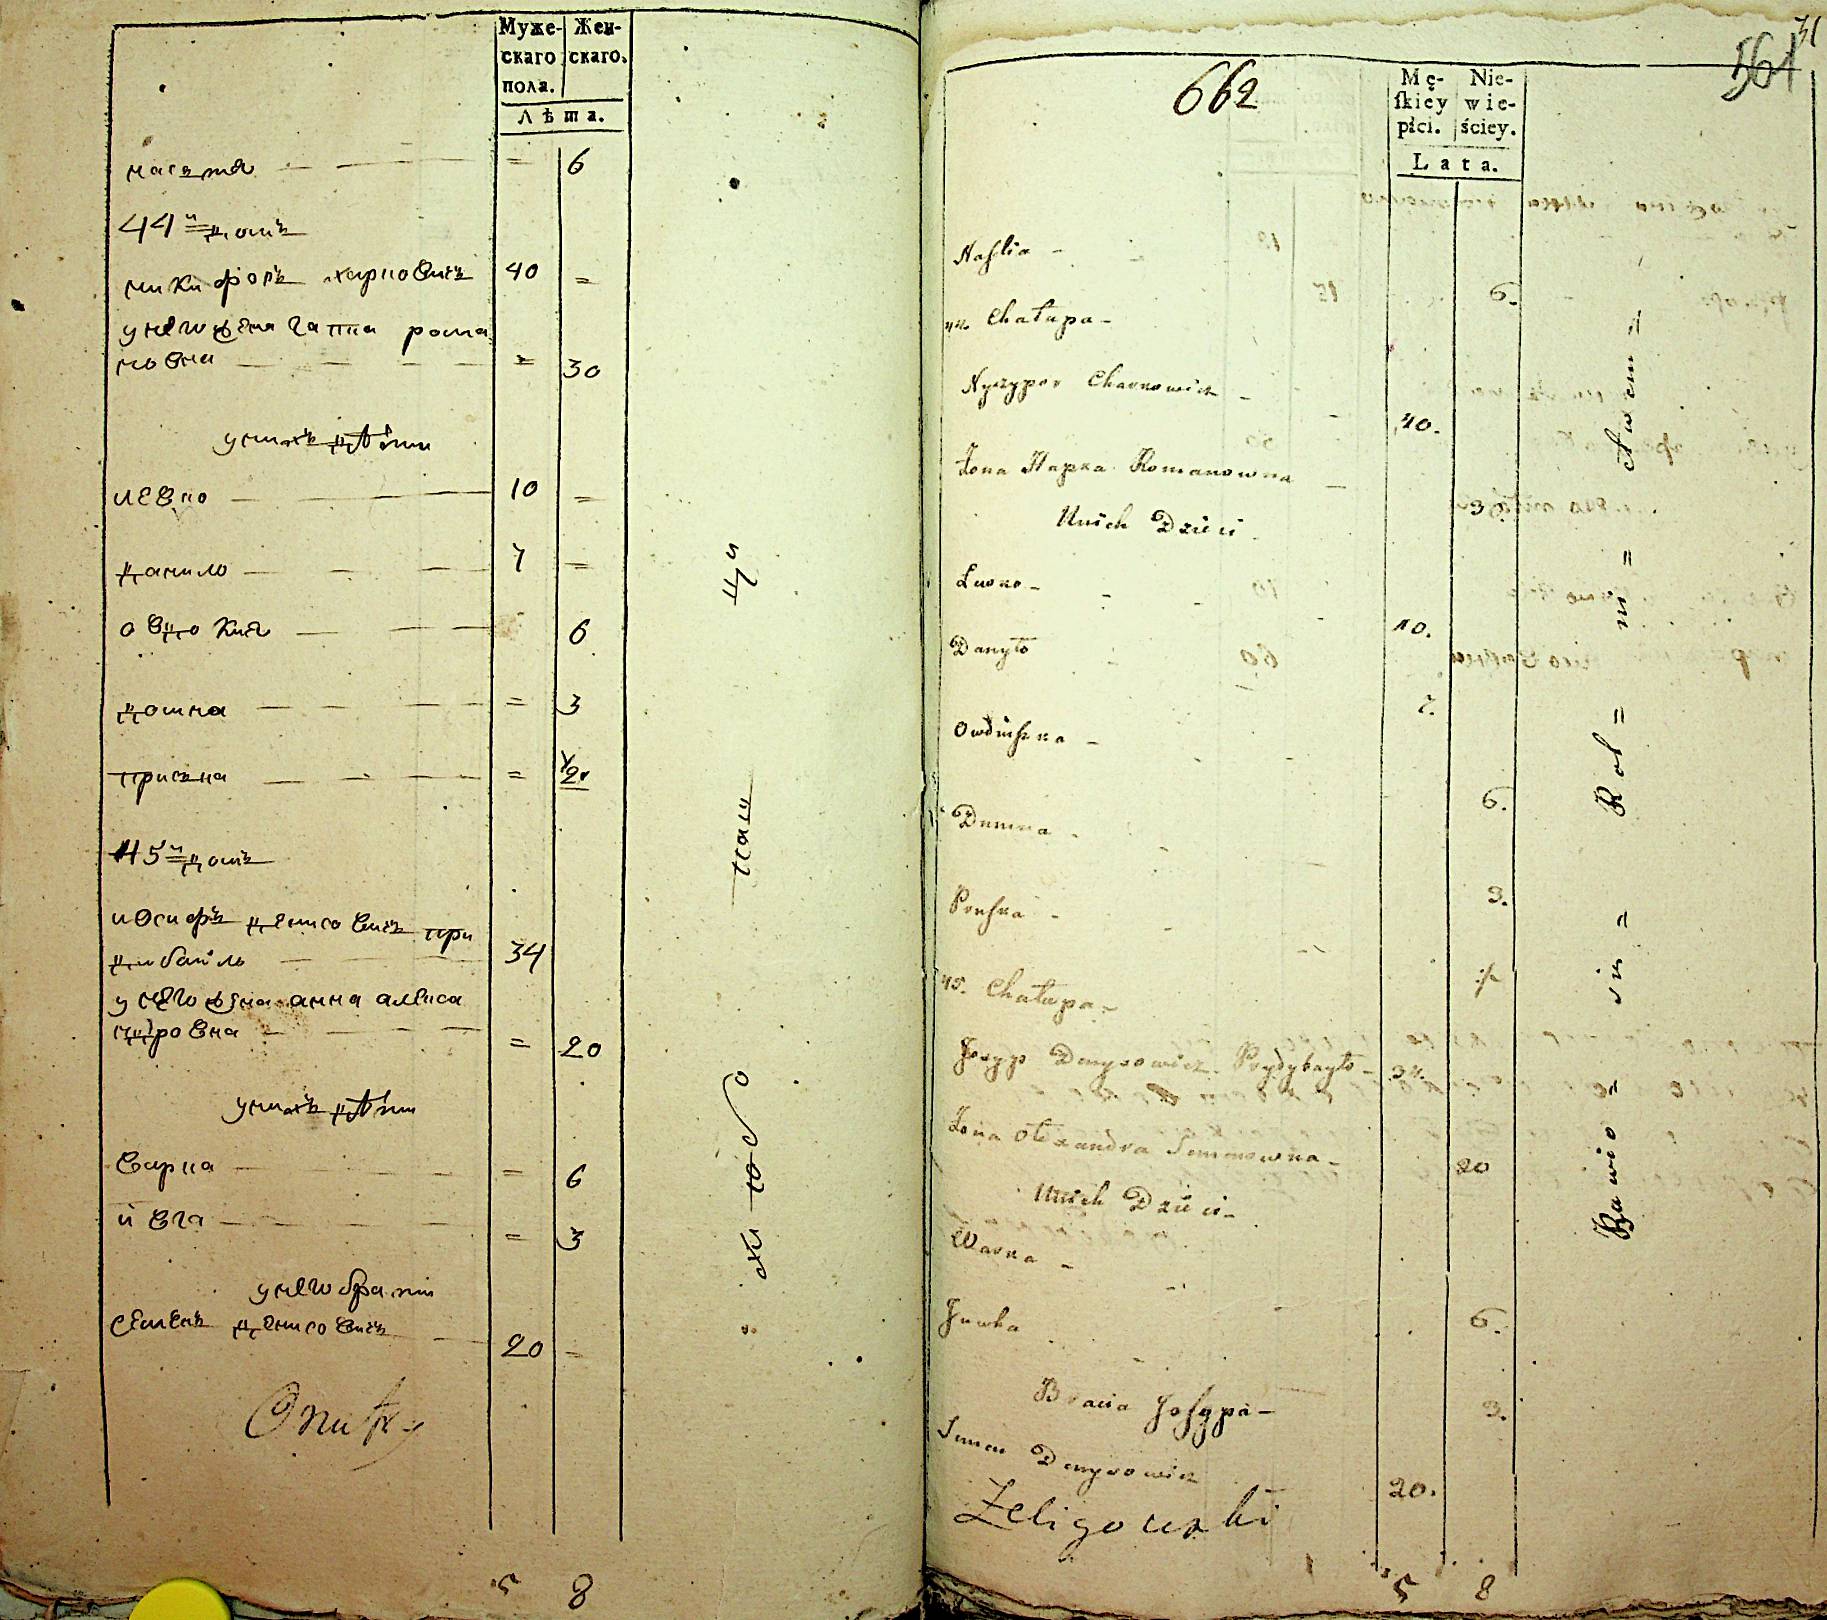 Муже-
скаго
пола.
Жен-
скаго.
Лѣта.
настя = 6
44й домъ
никифоръ харковичъ 40 =
у него жена гапка рома
новна = 30
у нихъ дѣти
левко 10 =
данило 7 =
овдокия 6
домна = 3
приська = 1/2
45й домъ
иосифъ денисовичъ при
дибайлъ 34
у него жена анна алекса
ндровна = 20
у нихъ дѣти
варка = 6
ивга = 3
у него братъ
семенъ денисовичъ 20 =
5 8
662
561
31
Mę-
skiey
płci.
Nie-
wie-
ściey.
Lata.
Nastia - 6.
44. Chałupa -
Nyczypor Charkowicz - 40.
Żona Hapka Romanowna - 30
Unich Dzieci
Lewko - 10.
Danyło 7.
Owduszka - 6.
Dumna - 3.
Pryska - 1/2
45. Chałupa -
Josyp Denysowicz Prydybayło - 34.
Żona Olexandra Semenowna - 20
Unich Dzieci -
Warka - 6.
Juwha 3.
Bracia Josypa -
Semen Denysowicz 20.
Żeligowski
5 8